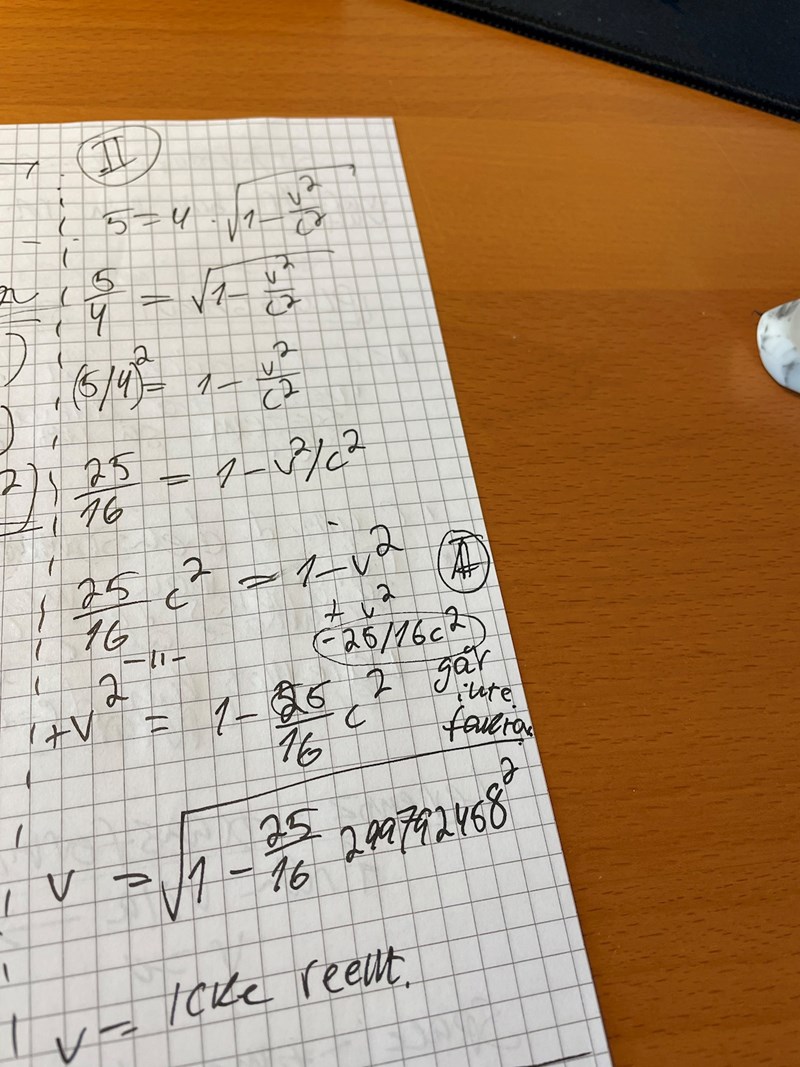 II
5 = 4 · √1 - v²/c²
5/4 = √1 - v²/c²
(5/4)² = 1 - v²/c²
25/16 = 1 - v²/c²
25/16 c² = 1 - v²
+ v²
- 25/16c²
går
inte
+v² = 1 - 25/16 c²
v = √1 - 25/16 299792468²
v = icke reellt.
2)